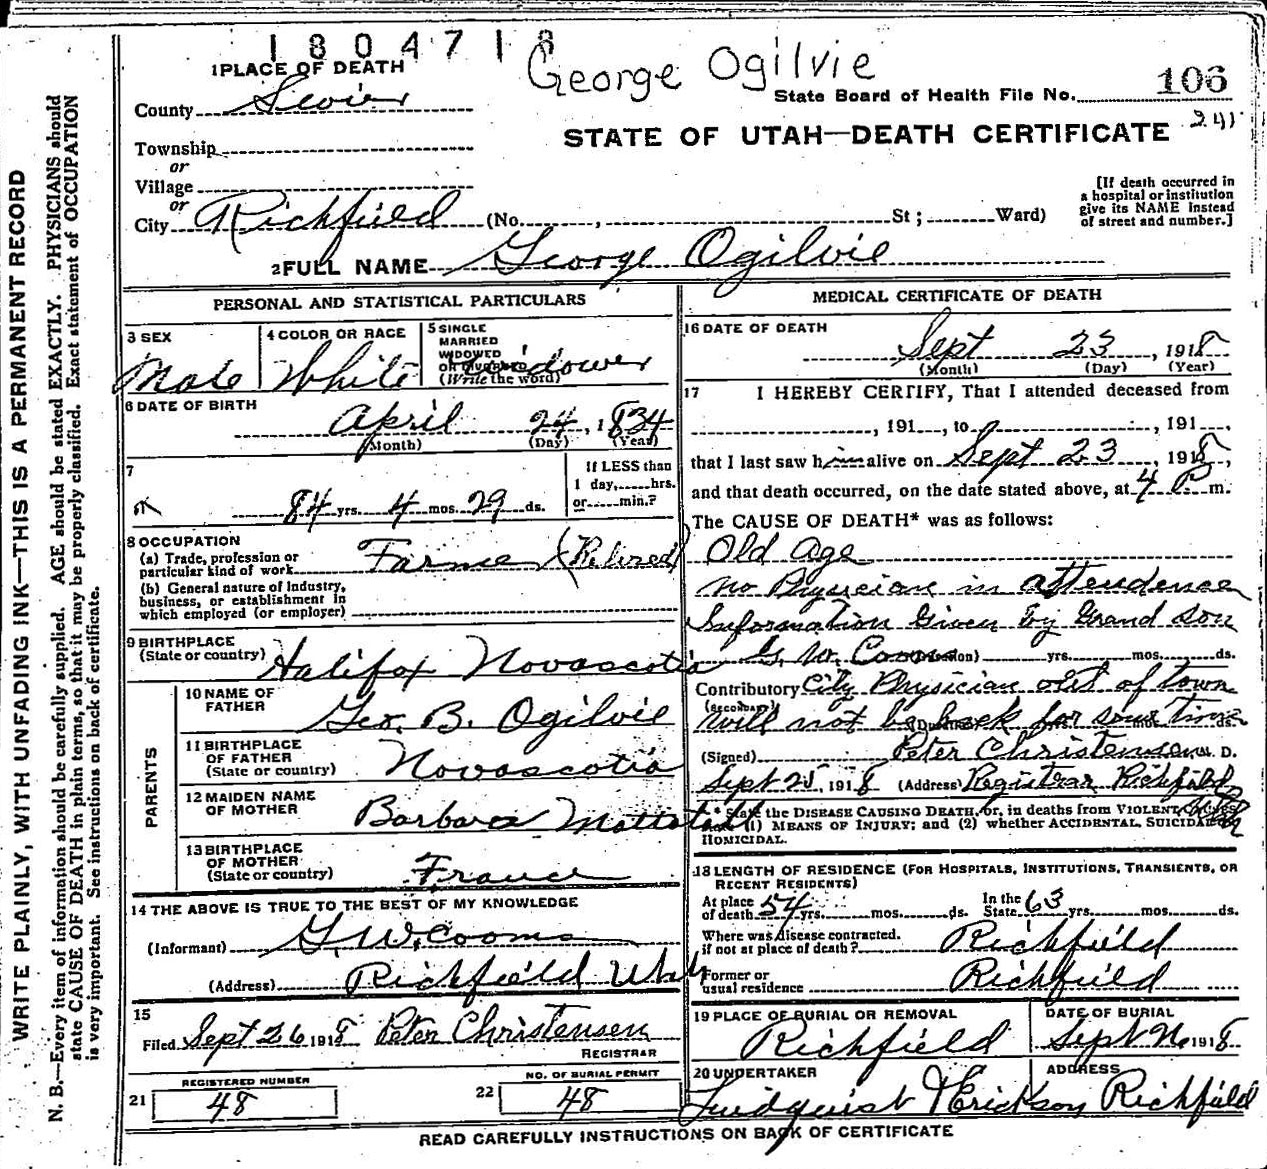 1 8 0 4 7 1 8
George Ogilvie
1 PLACE OF DEATH
County Sevier
State Board of Health File No. 106
241
STATE OF UTAH—DEATH CERTIFICATE
Township
or
Village
or
City Richfield (No. , St ; Ward)
[If death occurred in
a hospital or institution
give its NAME instead
of street and number.]
2 FULL NAME George Ogilvie
PERSONAL AND STATISTICAL PARTICULARS
3 SEX
Male
4 COLOR OR RACE
White
5 SINGLE
MARRIED
WIDOWED
OR DIVORCED
(Write the word)
widower
6 DATE OF BIRTH
April 24, 1834
(Month) (Day) (Year)
7
84 yrs. 4 mos. 29 ds.
If LESS than
1 day, hrs.
or min.?
8 OCCUPATION
(a) Trade, profession or
particular kind of work Farmer (Retired)
(b) General nature of industry,
business, or establishment in
which employed (or employer)
9 BIRTHPLACE
(State or country) Halifax Novascotia
PARENTS
10 NAME OF
FATHER Geo. B. Ogilvie
11 BIRTHPLACE
OF FATHER
(State or country) Novascotia
12 MAIDEN NAME
OF MOTHER Barbara
13 BIRTHPLACE
OF MOTHER
(State or country) France
14 THE ABOVE IS TRUE TO THE BEST OF MY KNOWLEDGE
(Informant) G. W. Cooms
(Address) Richfield Utah
15
Filed Sept 26 1918 Peter Christensen
REGISTRAR
REGISTERED NUMBER
21 48
NO. OF BURIAL PERMIT
22 48
MEDICAL CERTIFICATE OF DEATH
16 DATE OF DEATH
Sept 23, 1918
(Month) (Day) (Year)
17 I HEREBY CERTIFY, That I attended deceased from
, 191 , to , 191 ,
that I last saw him alive on Sept 23, 1918,
and that death occurred, on the date stated above, at 4 P. m.
The CAUSE OF DEATH* was as follows:
Old Age
No Physician in attendence
Information Given by Grand son
G. W. Cooms yrs. mos. ds.
Contributory City Physician out of town
(SECONDARY) will not be back for some time
(Signed) Peter Christensen M. D.
Sept 25, 1918 (Address) Registrar Richfield
* State the DISEASE CAUSING DEATH, or, in deaths from VIOLENT CAUSES
(1) MEANS OF INJURY; and (2) whether ACCIDENTAL, SUICIDAL or
HOMICIDAL.
18 LENGTH OF RESIDENCE (FOR HOSPITALS, INSTITUTIONS, TRANSIENTS, OR
RECENT RESIDENTS)
At place In the
of death 54 yrs. mos. ds. State 63 yrs. mos. ds.
Where was disease contracted.
if not at place of death? Richfield
Former or
usual residence Richfield
19 PLACE OF BURIAL OR REMOVAL
Richfield
DATE OF BURIAL
Sept 1918
20 UNDERTAKER
Lindquist & Erickson
ADDRESS
Richfield
READ CAREFULLY INSTRUCTIONS ON BACK OF CERTIFICATE
WRITE PLAINLY, WITH UNFADING INK—THIS IS A PERMANENT RECORD
N. B.—Every item of information should be carefully supplied. AGE should be stated EXACTLY. PHYSICIANS should
state CAUSE OF DEATH in plain terms, so that it may be properly classified. Exact statement of OCCUPATION
is very important. See instructions on back of certificate.